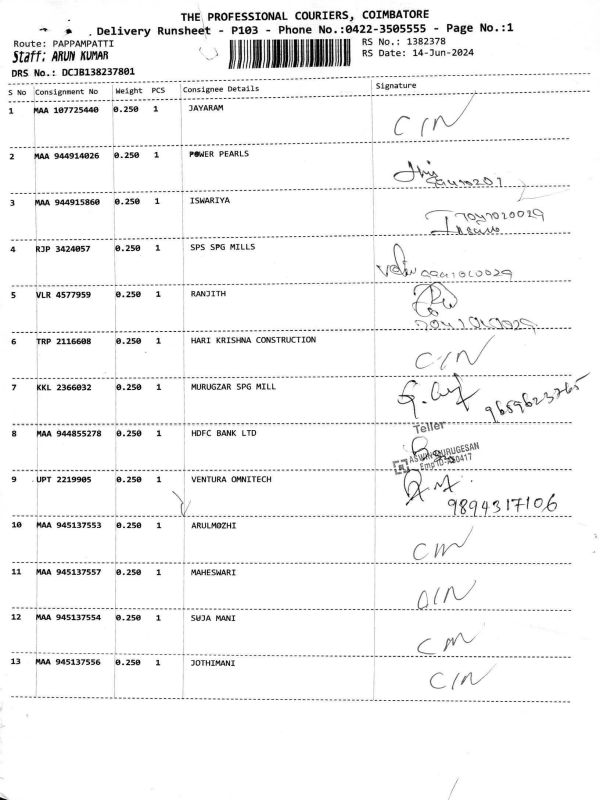 THE PROFESSIONAL COURIERS, COIMBATORE
Delivery Runsheet - P103 - Phone No.:0422-3505555 - Page No.:1
Route: PAPPAMPATTI RS No.: 1382378
Staff: ARUN KUMAR RS Date: 14-Jun-2024
DRS No.: DCJB138237801
S No Consignment No Weight PCS Consignee Details Signature
1 MAA 107725440 0.250 1 JAYARAM C/N
2 MAA 944914026 0.250 1 POWER PEARLS
3 MAA 944915860 0.250 1 ISWARIYA
4 RJP 3424057 0.250 1 SPS SPG MILLS
5 VLR 4577959 0.250 1 RANJITH
6 TRP 2116608 0.250 1 HARI KRISHNA CONSTRUCTION C/N
7 KKL 2366032 0.250 1 MURUGZAR SPG MILL
9659623765
Teller
8 MAA 944855278 0.250 1 HDFC BANK LTD
ASWIN MURUGESAN
9 UPT 2219905 0.250 1 VENTURA OMNITECH
9894317106
10 MAA 945137553 0.250 1 ARULMOZHI
11 MAA 945137557 0.250 1 MAHESWARI
12 MAA 945137554 0.250 1 SUJA MANI
13 MAA 945137556 0.250 1 JOTHIMANI C/N